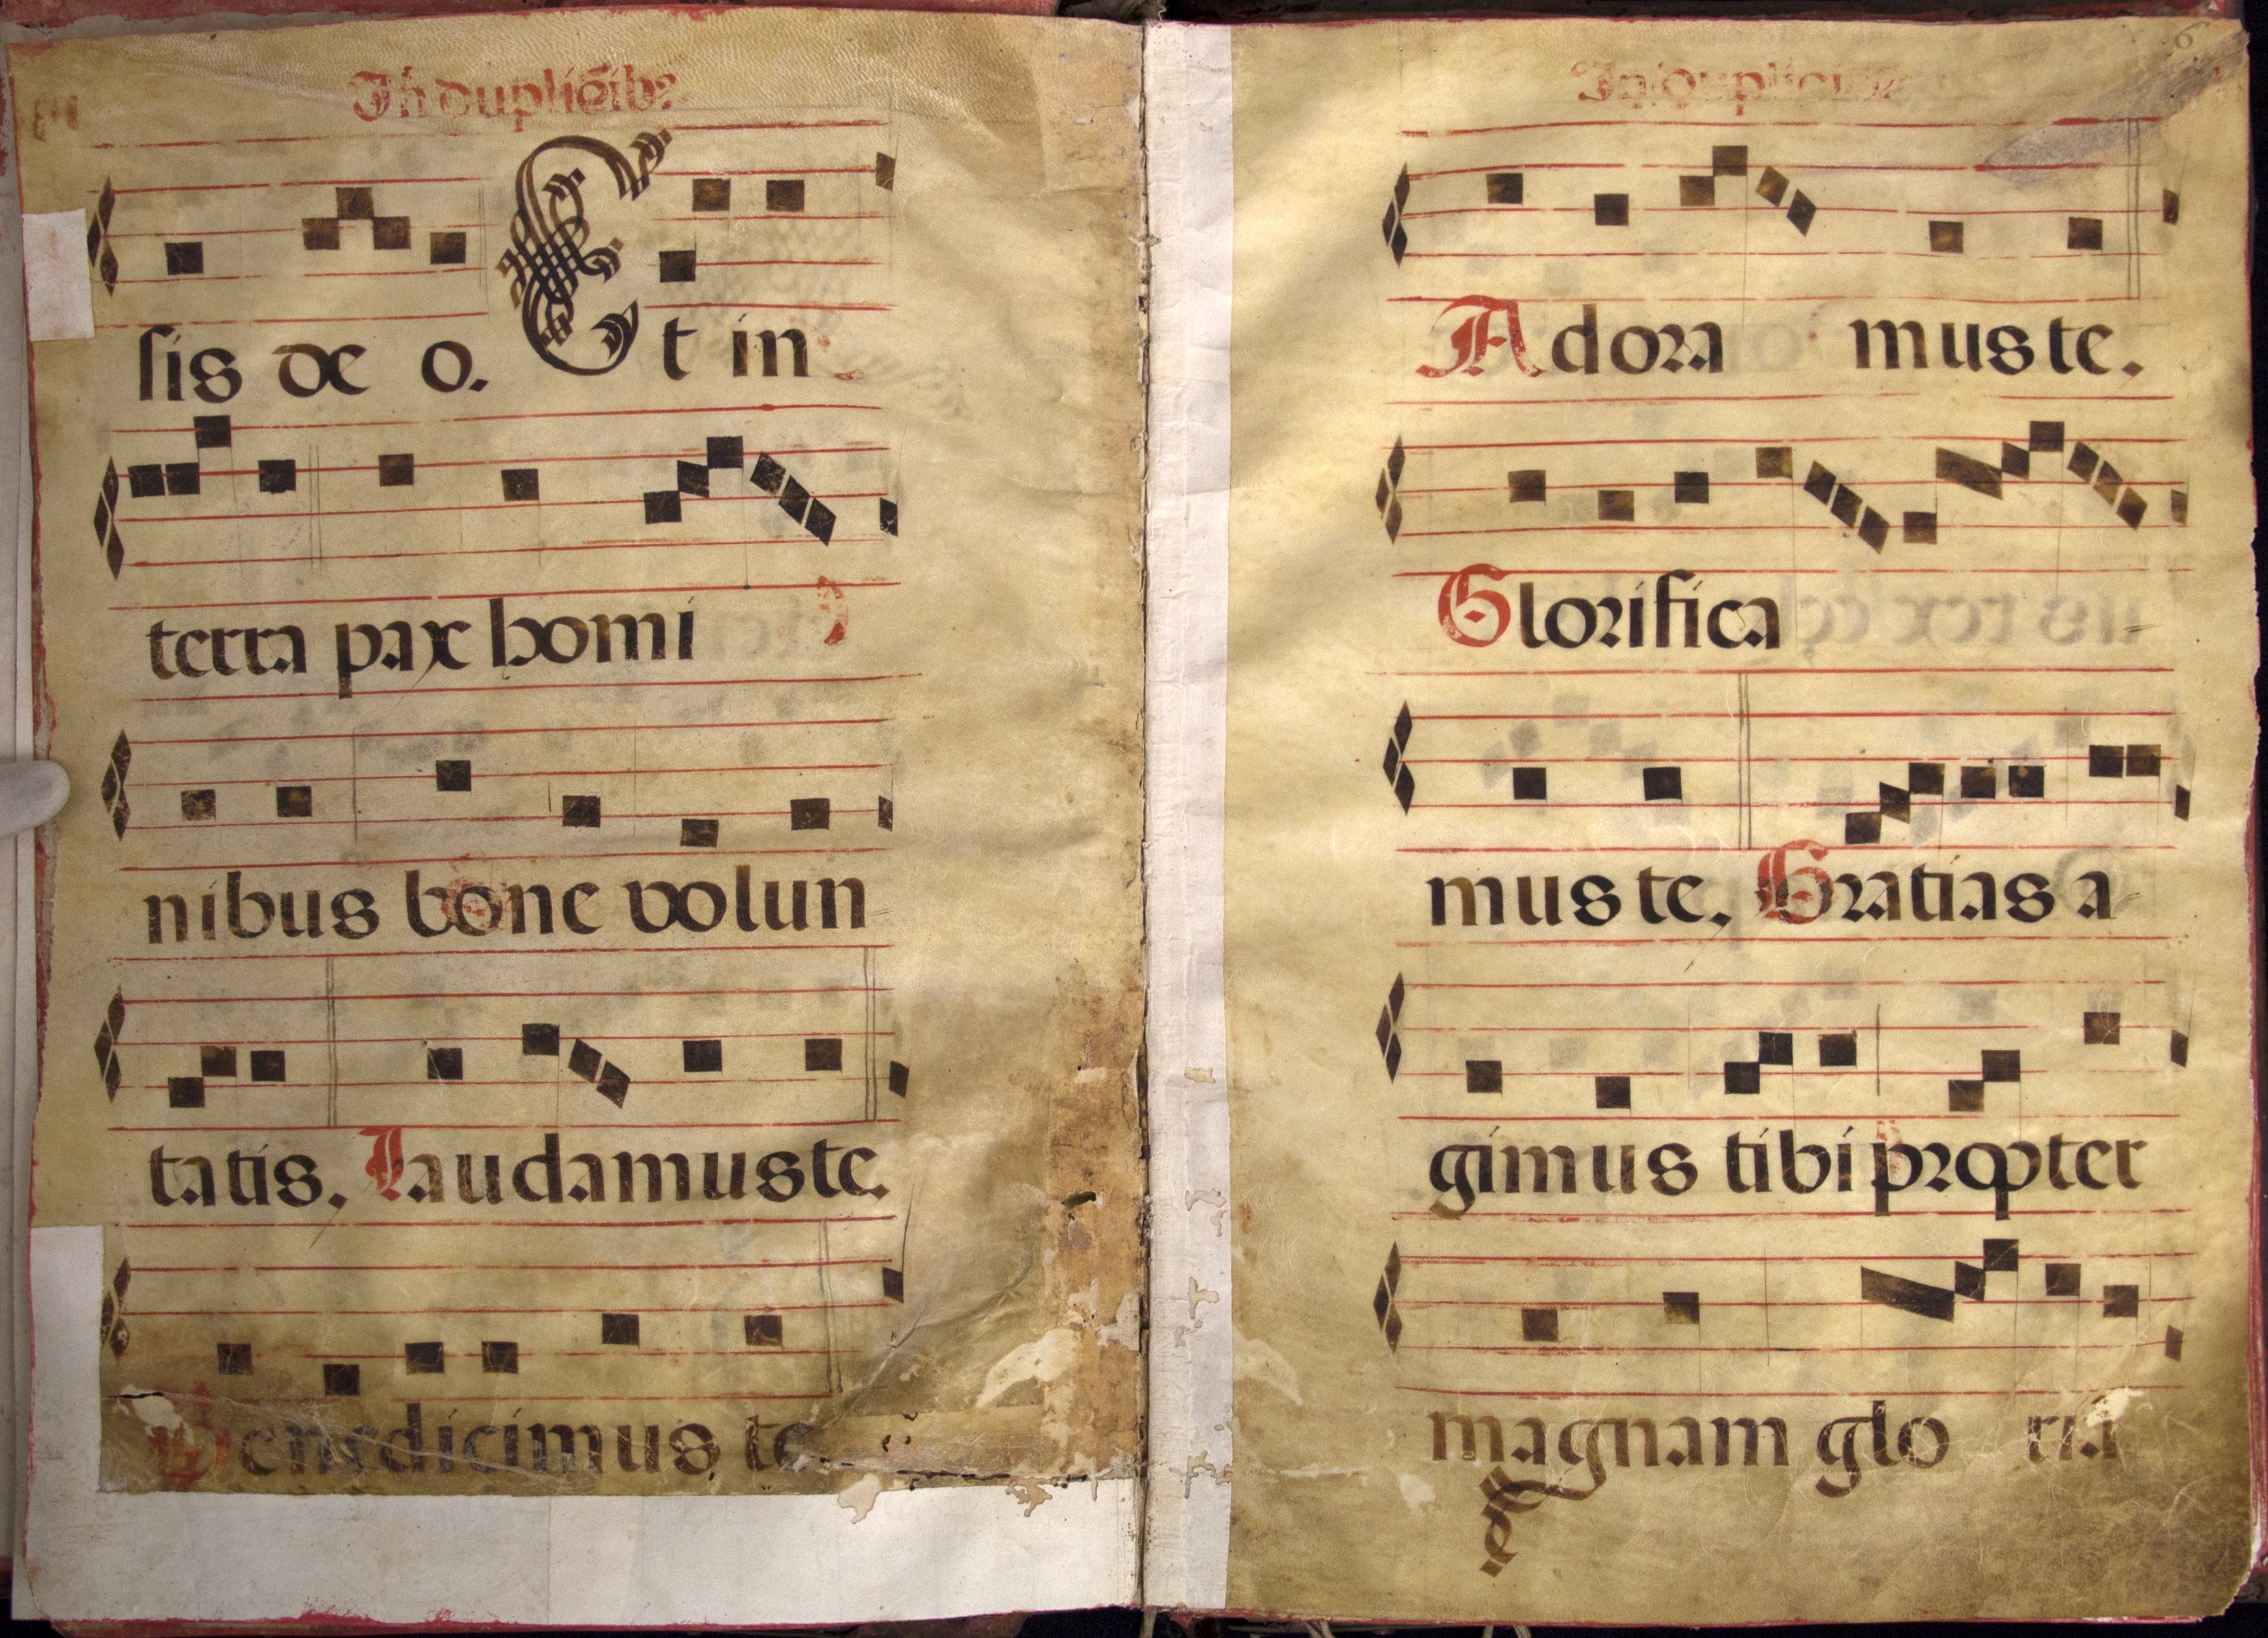 In duplicib9
sis de o. Et in
terra pax homi
nibus bone volun
tatis. Laudamus te.
Benedicimus te.
6
In duplici
Adora mus te.
Glorifica
mus te. Gratias a
gimus tibi propter
magnam glo ria